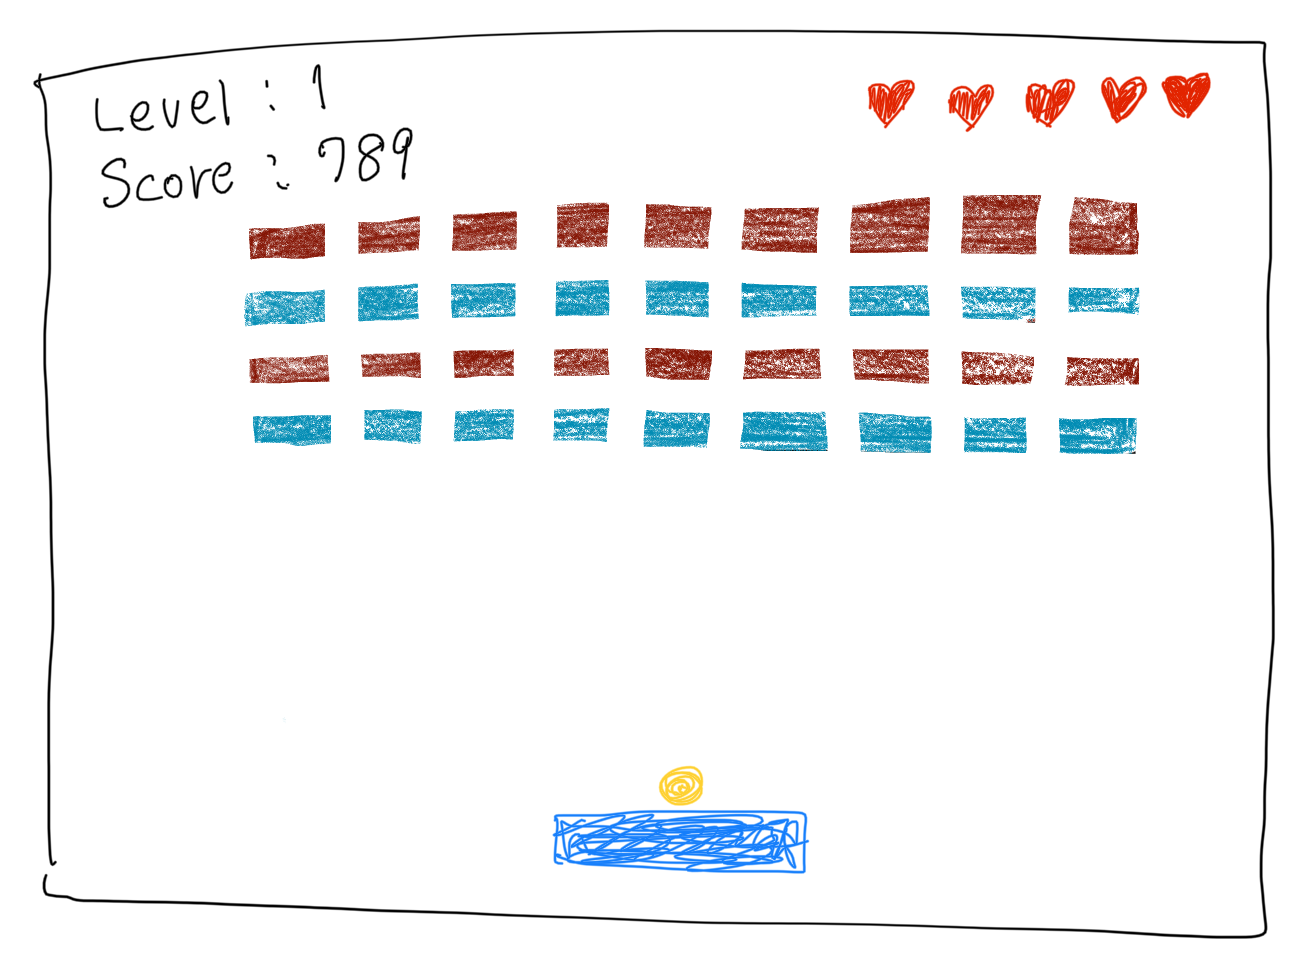 Level : 1
Score : 789